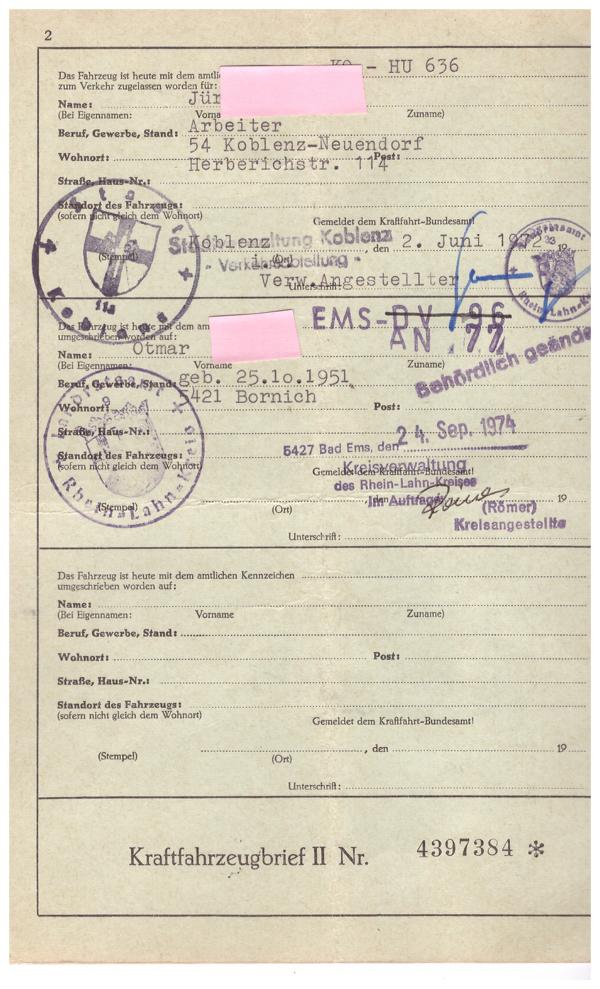 2
Das Fahrzeug ist heute mit dem amtli KO - HU 636
zum Verkehr zugelassen worden für:
Name: Jür
(Bei Eigennamen: Vorna Zuname)
Beruf, Gewerbe, Stand: Arbeiter
Wohnort: 54 Koblenz-Neuendorf Post:
Straße, Haus-Nr.: Herberichstr. 114
Standort des Fahrzeugs:
(sofern nicht gleich dem Wohnort)
Gemeldet dem Kraftfahrt-Bundesamt!
Koblenz, den 2. Juni 1972 19
Stadtverwaltung Koblenz
- Verkehrsabteilung -
(Stempel) i.A. (Ort)
Verw.Angestellter
Unterschrift:
Stadt
Koblenz
11a
33
Rhein-Lahn-K
Das Fahrzeug ist heute mit dem am EMS-DV 96
umgeschrieben worden auf: AN 77
Name: Otmar
(Bei Eigennamen: Vorname Zuname)
Behördlich geände
Beruf, Gewerbe, Stand: geb. 25.10.1951
Wohnort: 5421 Bornich Post:
Straße, Haus-Nr.:
5427 Bad Ems, den 24. Sep. 1974
Standort des Fahrzeugs:
(sofern nicht gleich dem Wohnort)
Gemeldet dem Kraftfahrt-Bundesamt!
Kreisverwaltung
des Rhein-Lahn-Kreises
Im Auftrage:
, den 19
(Stempel) (Ort)
(Römer)
Kreisangestellte
Unterschrift:
9
Rhein-Lahn-Kreis
Das Fahrzeug ist heute mit dem amtlichen Kennzeichen
umgeschrieben worden auf:
Name:
(Bei Eigennamen: Vorname Zuname)
Beruf, Gewerbe, Stand:
Wohnort: Post:
Straße, Haus-Nr.:
Standort des Fahrzeugs:
(sofern nicht gleich dem Wohnort)
Gemeldet dem Kraftfahrt-Bundesamt!
, den 19
(Stempel) (Ort)
Unterschrift:
Kraftfahrzeugbrief II Nr. 4397384 *